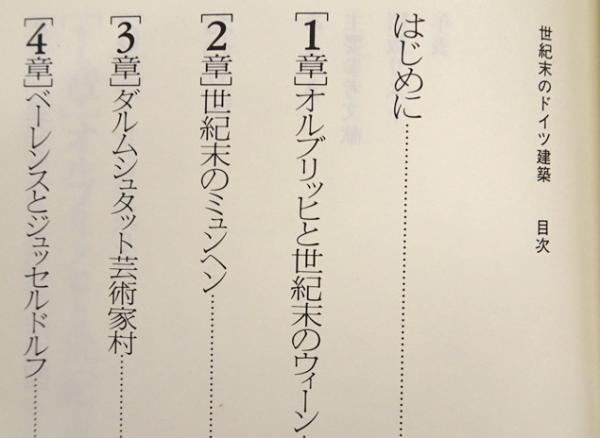 世紀末のドイツ建築　目次
はじめに
[1章]オルブリッヒと世紀末のウィーン
[2章]世紀末のミュンヘン
[3章]ダルムシュタット芸術家村
[4章]ベーレンスとジュッセルドルフ